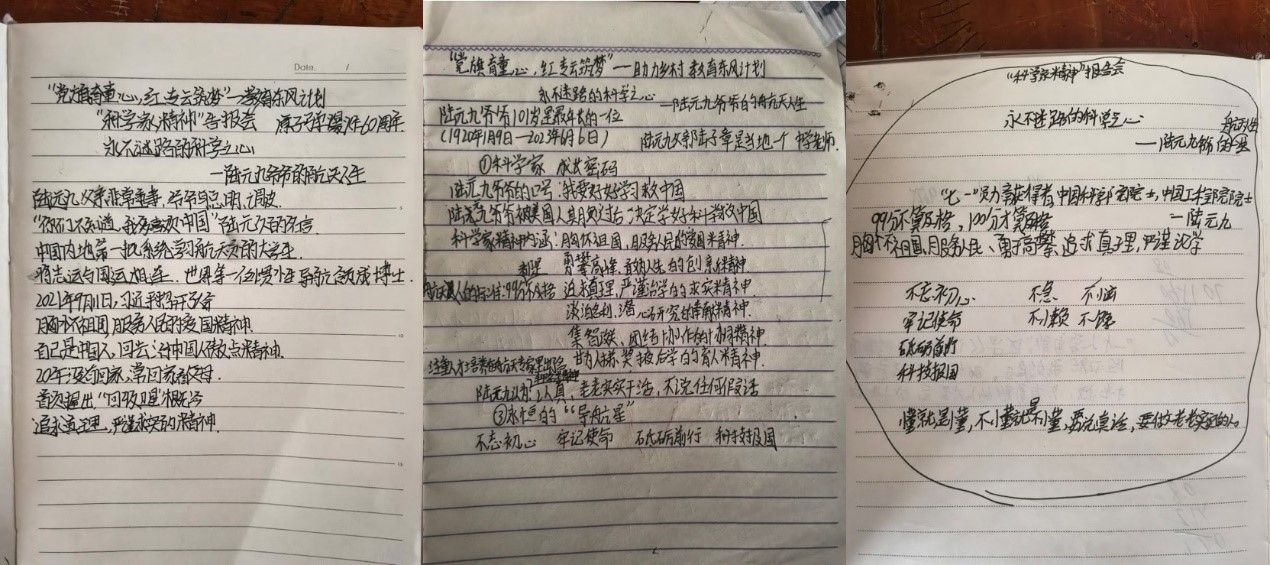 Date. /
"党旗育童心,红专云筑梦"—教育东风计划
"科学家精神"告报会 原子弹爆炸60周年
永不迷路的科学之心
—陆元九爷爷的航天人生
陆元九父亲非常重事,
"你们不知道,我多喜欢中国"陆元九的
中国内地第一批系统学习航天的大学生.
将志运与国运相连. 世界第一位惯性导航 博士.
2021年9月11日,
胸怀祖国,服务人民的爱国精神.
自己是中国人,回去 中国人做点精神.
20年没有回家,
首次提出"回收卫星"概念
追求真理,严谨求实的精神.
"党旗育童心,红专云筑梦"—助力乡村教育东风计划
永不迷路的科学之心
—陆元九爷爷的航天人生
陆元九爷爷101岁是最年长的一位
(1920年1月9日—2023年6月6日) 陆元九父亲陆子章是当地一个中学老师.
①科学家 成长密码
陆元九爷爷的口号:我要好好学习救中国
陆元九爷爷被美国人 决定学好科学救中国
科学家精神内涵:胸怀祖国,服务人民的爱国精神.
勇攀高峰, 的创新精神.
航天人的标准:99分不及格 追求真理,严谨治学的求实精神
淡泊名利,潜心研究的奉献精神.
集智 ,团结协作的协同精神
注重人才培养 甘为人梯,奖掖后学的育人精神.
陆元九认为:认真,老老实实干活,不说任何假话
③永恒的"导航星"
不忘初心 牢记使命 砥砺前行 科技报国
"科学家精神"报告会
永不迷路的科学之心
—陆元九爷爷的 航天人生
"七一"勋章获得者,中国科学院院士,中国工程院院士
99分不算及格,100分才算及格 —陆元九
胸怀祖国,服务人民、勇于高攀、追求真理,严谨治学
不忘初心 不急 不
牢记使命 不懒 不馋
砥砺前行
科技报国
懂就是懂,不懂就是不懂,要说真话,要做老老实实的人。